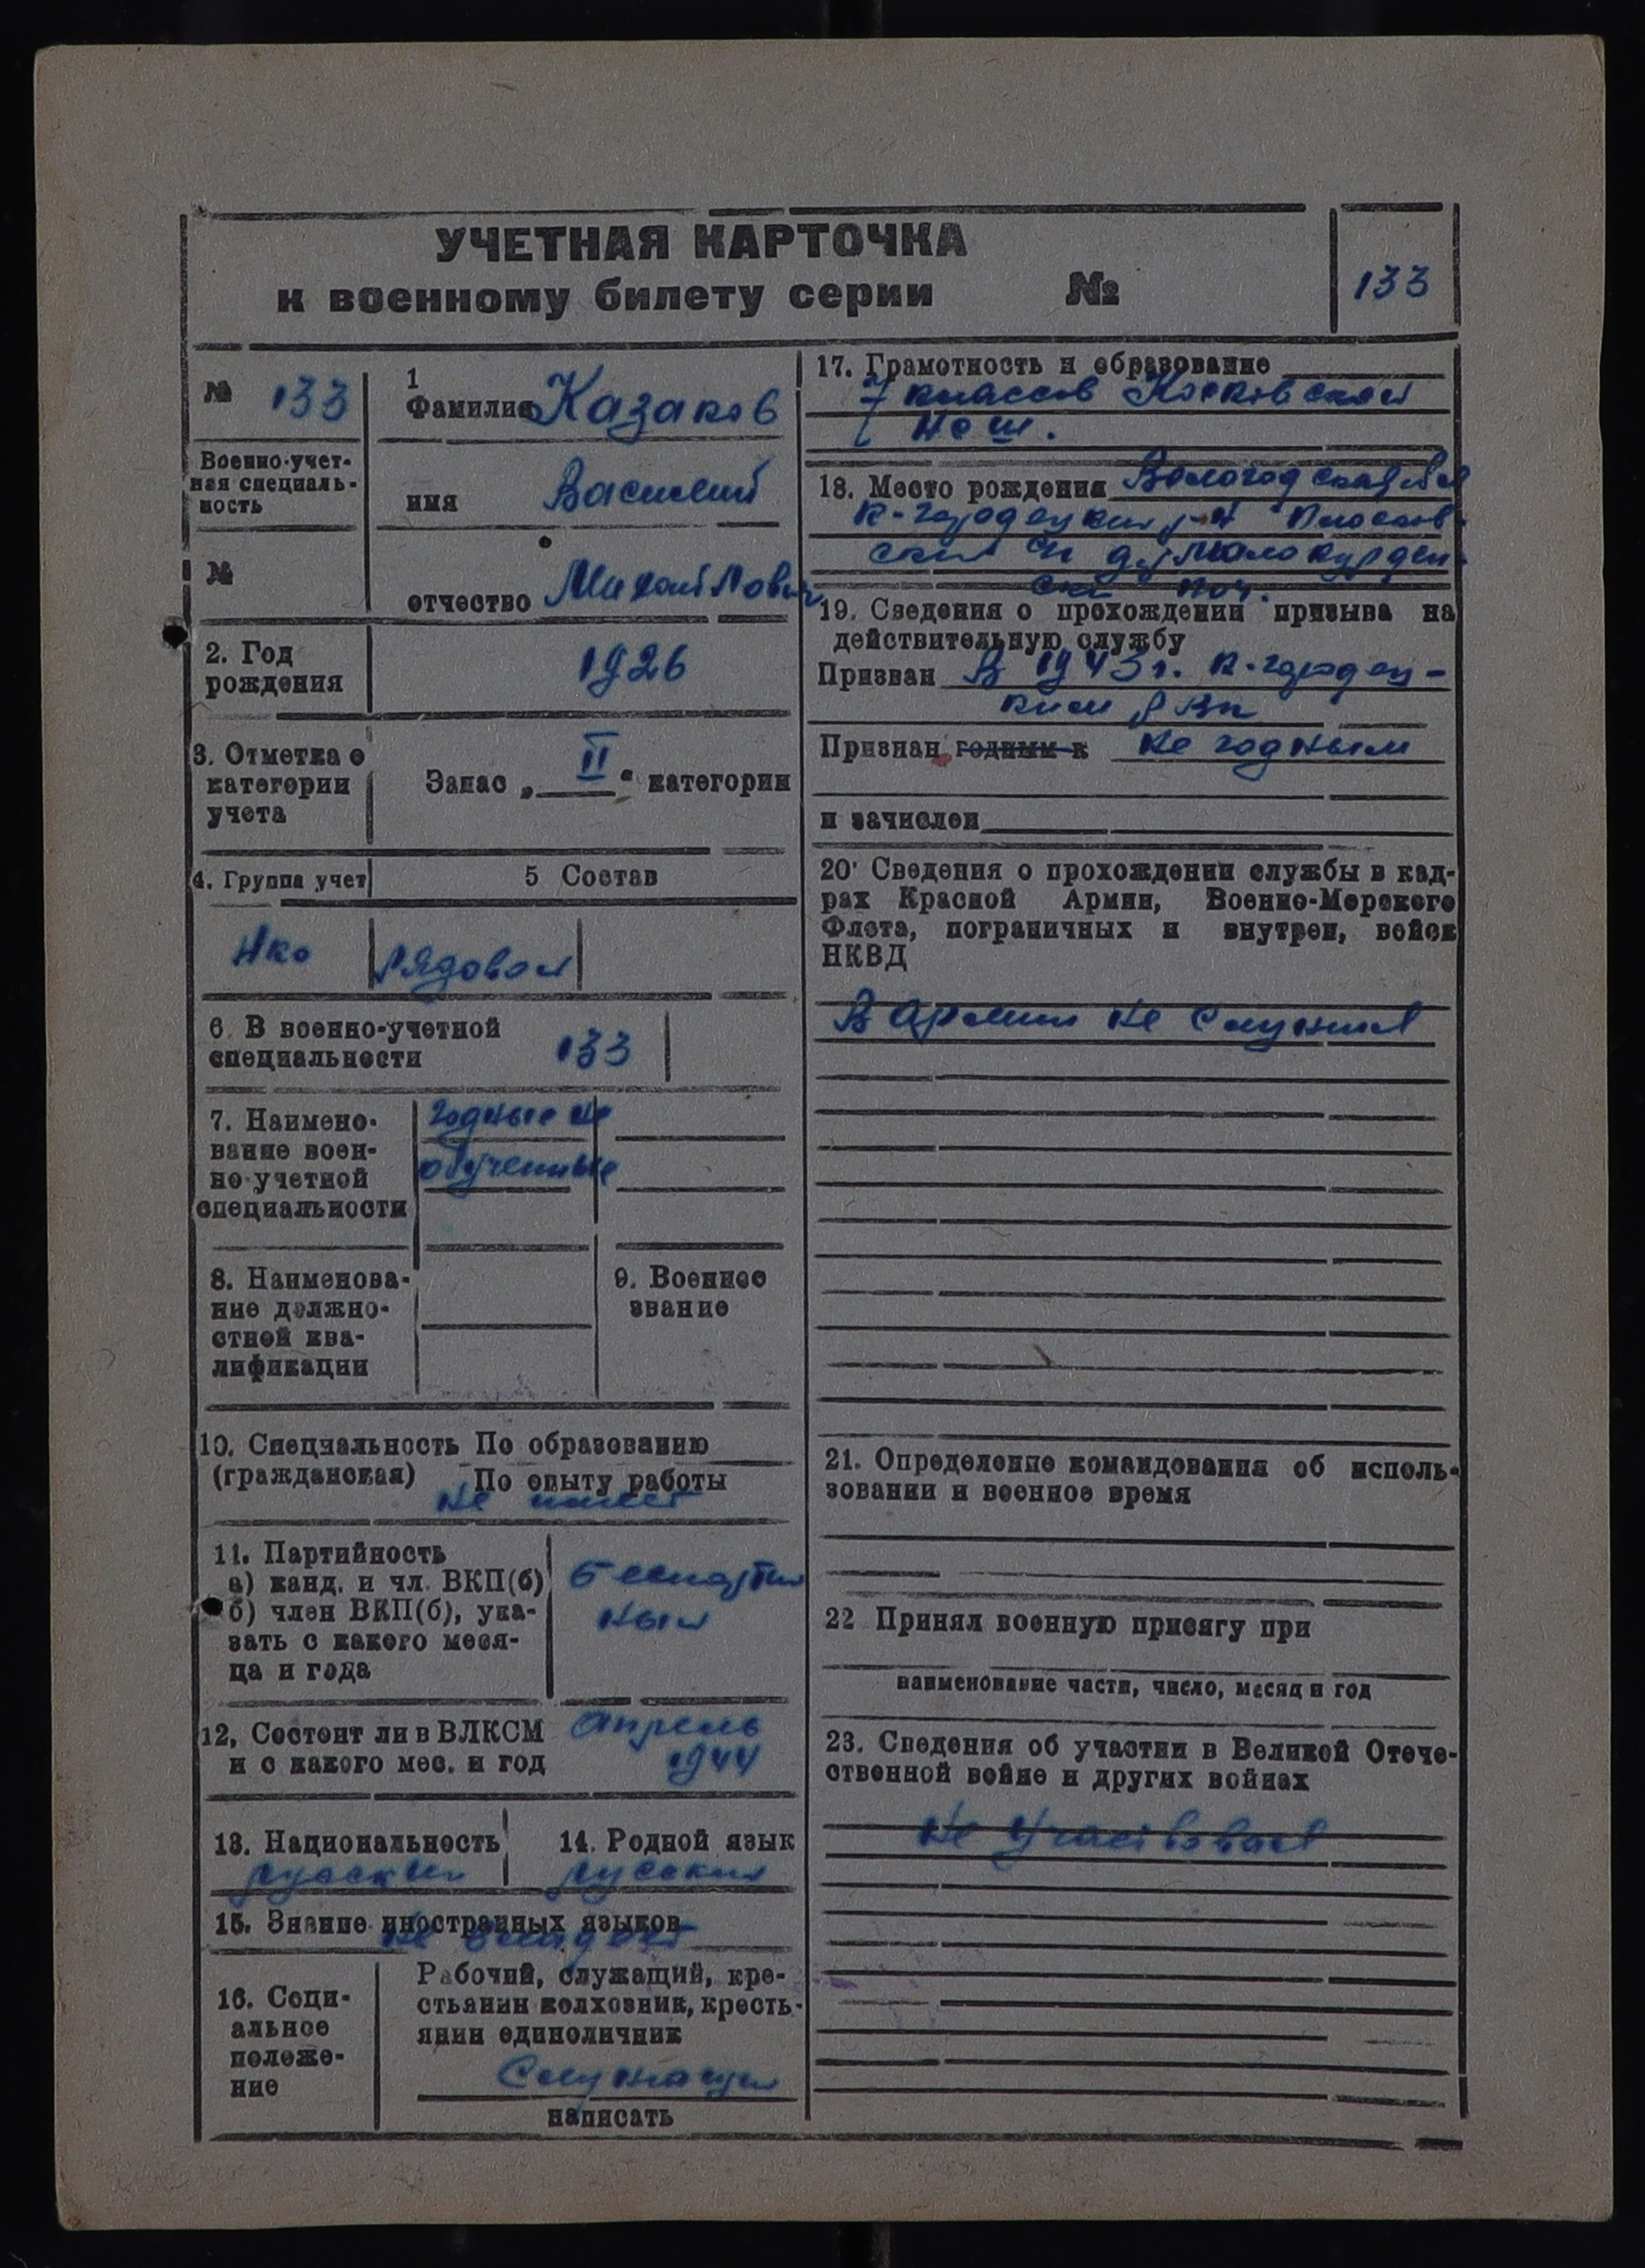 УЧЕТНАЯ КАРТОЧКА
к военному билету серии №
133
№ 133
Военно-учет-
ная специаль-
ность
№
1
Фамилия Казаков
имя Василий
отчество Михайлович
2. Год
рождения
1926
3. Отметка о
категории
учета
Запас „ II “ категории
4. Группа учет
5 Состав
Нко
Рядовой
6. В военно-учетной
специальности
133
7. Наимено-
вание воен-
но-учетной
специальности
Годные не
обученные
8. Наименова-
ние должно-
стной ква-
лификации
9. Военное
звание
10. Специальность По образованию
(гражданская) По опыту работы
не имеет
11. Партийность
а) канд. и чл. ВКП(б)
б) член ВКП(б), ука-
зать с какого меся-
ца и года
Беспартий
ный
12, Состоит ли в ВЛКСМ
и с какого мес. и год
Апрель
1944
13. Национальность
русский
14. Родной язык
русский
15. Знание иностранных языков
не владеет
16. Соци-
альное
положе-
ние
Рабочий, служащий, кре-
стьянин колхозник, кресть-
янин единоличник
Служащий
написать
17. Грамотность и образование
7 классов
Неш.
18. Место рождения Вологодская обл
К-городецкий р-н
ский с/с д.
19. Сведения о прохождении призыва на
действительную службу
Призван В 1943 г. К-городец-
ким РВК
Признан годным к не годным
и зачислен
20· Сведения о прохождении службы в кад-
рах Красной Армии, Военно-Морского
Флота, пограничных и внутрен, войск
НКВД
В Армии не служил
21. Определение командования об исполь-
зовании и военное время
22 Принял военную присягу при
наименование части, число, месяц и год
23. Сведения об участии в Великой Отече-
ственной войне и других войнах
Не Участвовал